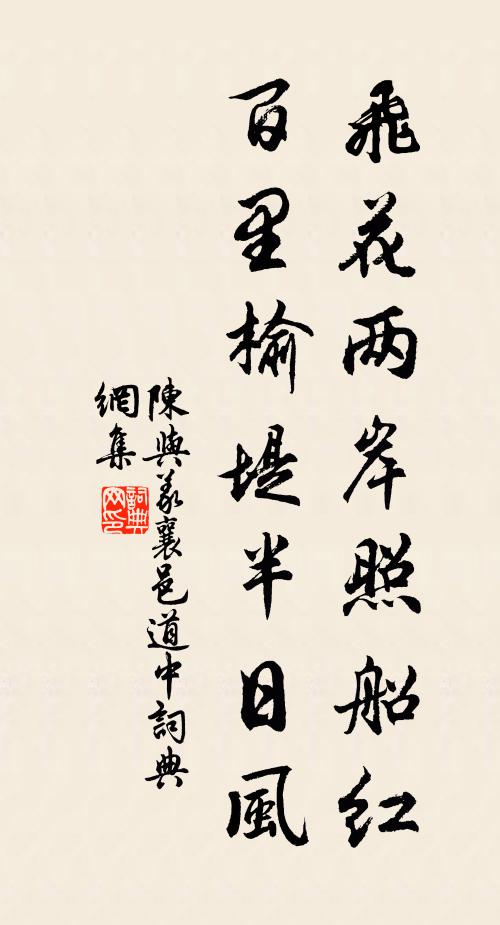 飛花两岸照船红
百里榆堤半日風
陳與義襄邑道中詞典
網集
詞典
网印